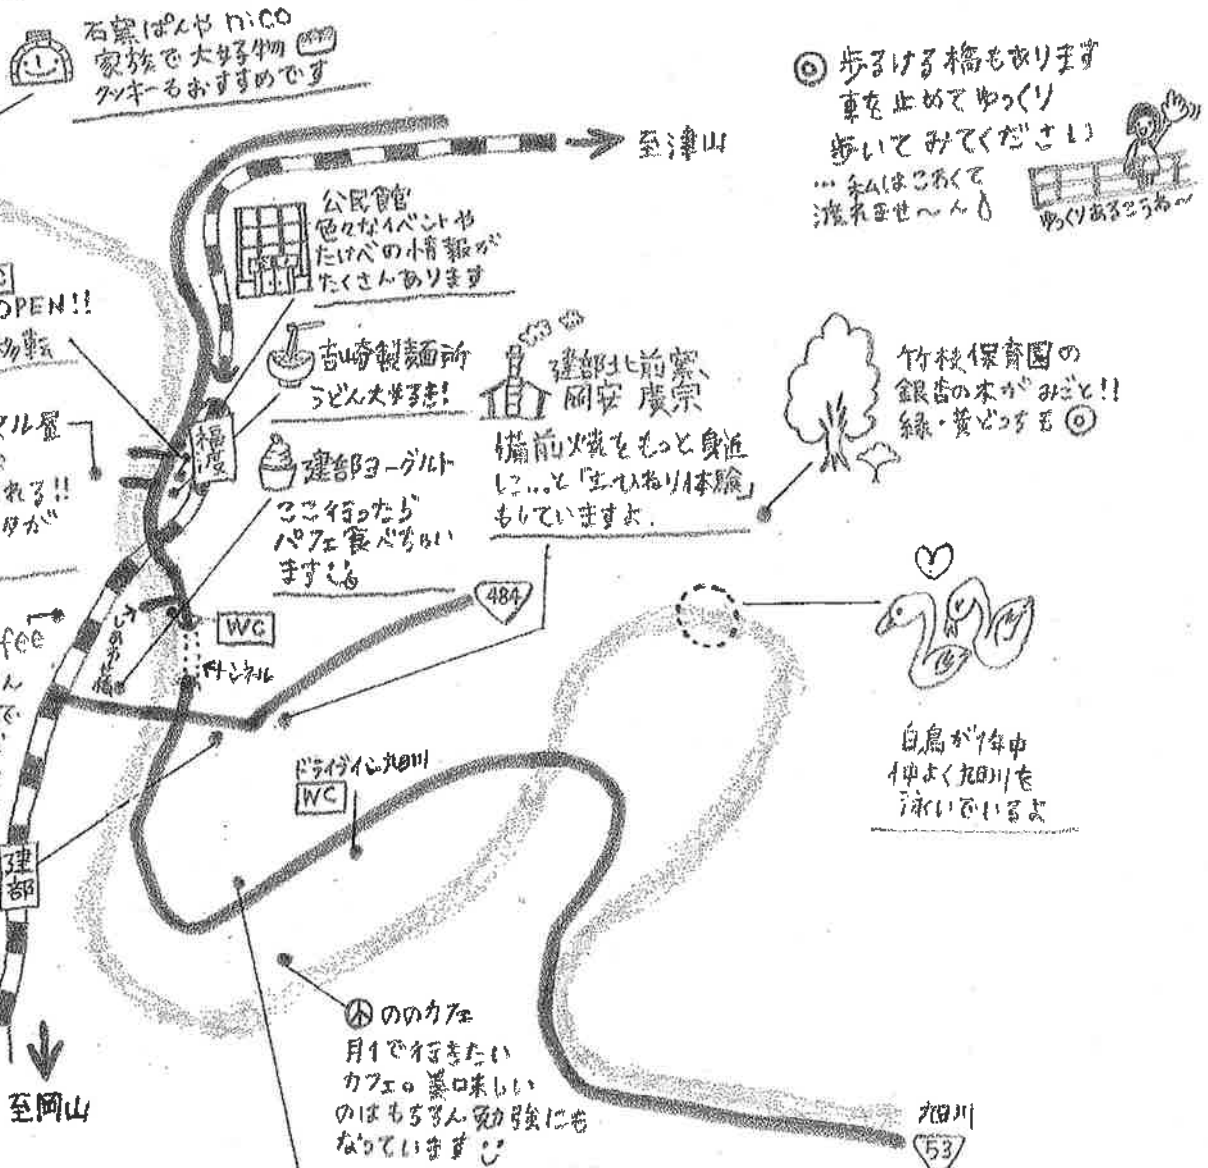 石窯ぱんや nico
家族で大好物
クッキーもおすすめです
◎ 歩るける橋もあります
車を止めてゆっくり
歩いてみてください
…私はこわくて
渡れませ〜ん
ゆっくりあるこうね〜
至津山
公民館
色々なイベントや
たけべの情報が
たくさんあります
OPEN!!
移転
吉崎製麺所
うどん大好き!
建部北前窯、
岡安 廣宗
備前焼をもっと身近
に...と「土ひねり体験」
もしていますよ.
竹枝保育園の
銀杏の木がみごと!!
緑・黄どっちも◎
福渡
マル屋
れる!!
が
建部ヨーグルト
ここ行ったら
パフェ食べちゃい
ます
484
WC
トンネル
ffee
ん
で
白鳥が1年中
仲よく旭川を
泳いでいるよ
ドライブイン旭川
WC
建部
ののカフェ
月1で行きたい
カフェ。美味しい
のはもちろん勉強にも
なっています
至岡山
旭川
53